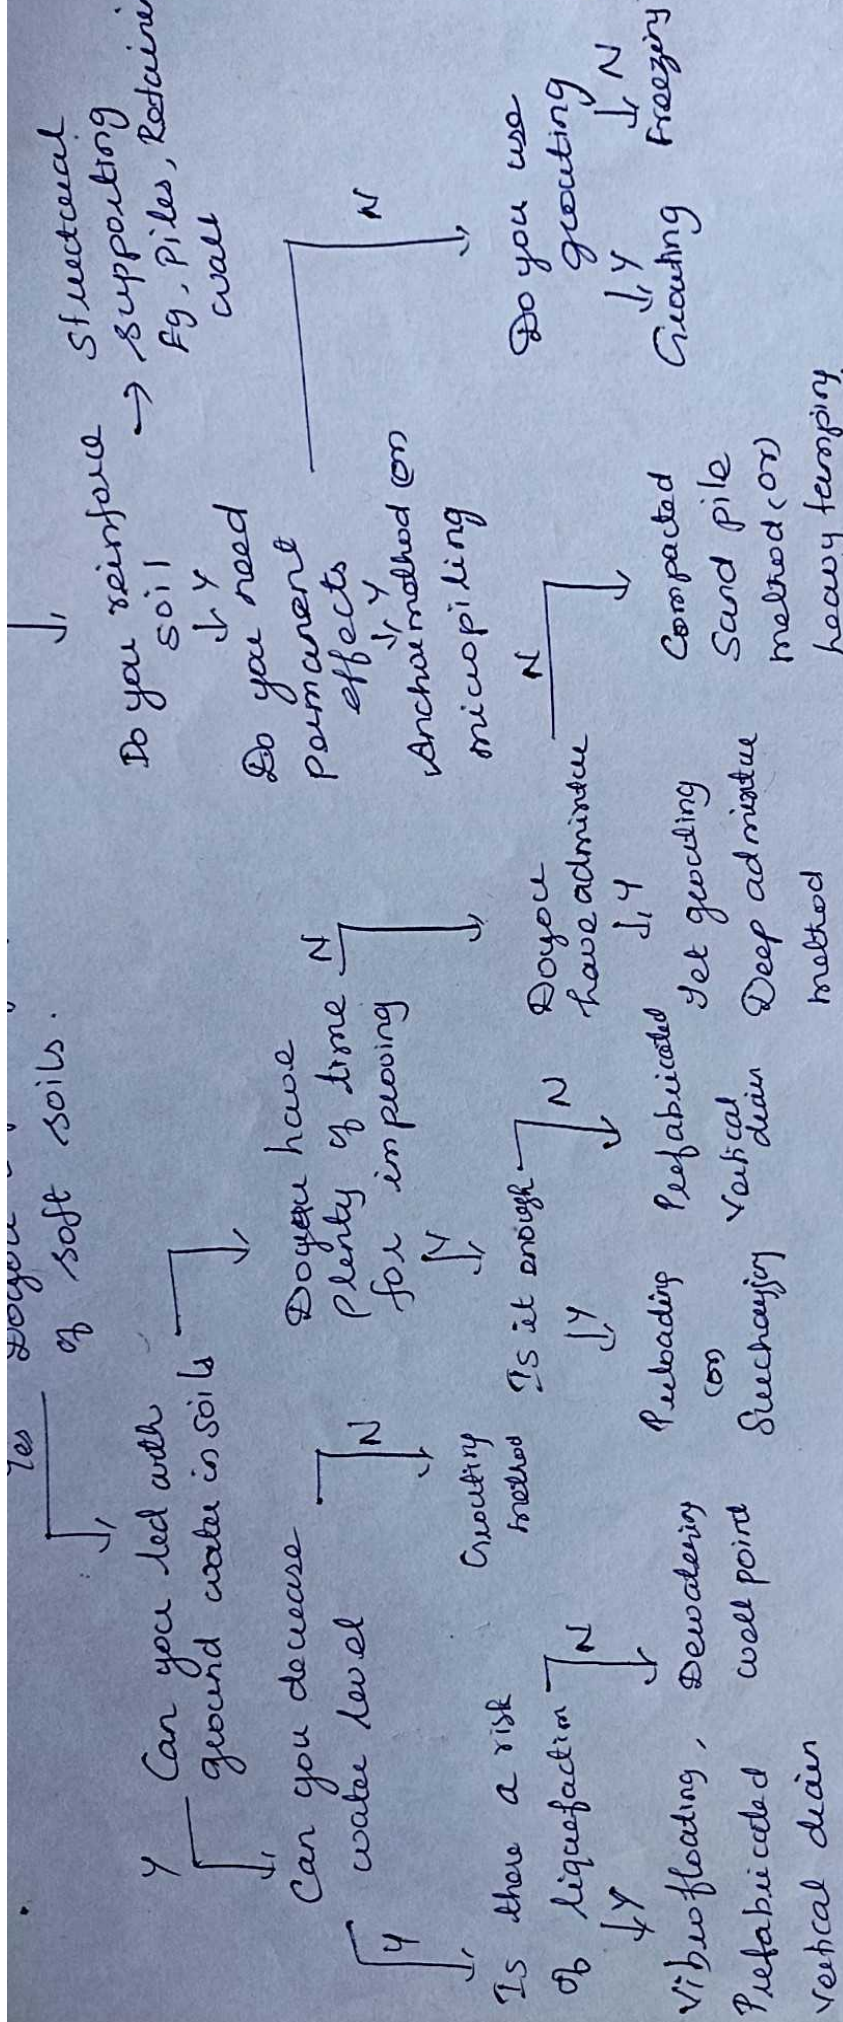 Yes
of soft soils.
Y
Can you led with
ground water in soils
Can you decrease
water level
Y
N
Is there a risk
of liquefaction
Y
N
Vibrofloating,
Prefabricated
Vertical drain
Dewatering
well point
Grouting
method
Do you have
Plenty of time
for improving
N
Y
Is it enough
N
Y
Preloading
(or)
Surcharging
Prefabricated
Vertical
drain
Do you
have admixture
N
Y
Jet grouting
Deep admixture
method
Compacted
Sand pile
method (or)
heavy tamping
Do you reinforce
soil
Y
→ Structural
supporting
Eg, Piles, Retaining
wall
Do you need
permanent
effects
Y
N
Anchor method (or)
micropiling
Do you use
grouting
Y
N
Grouting
Freezing